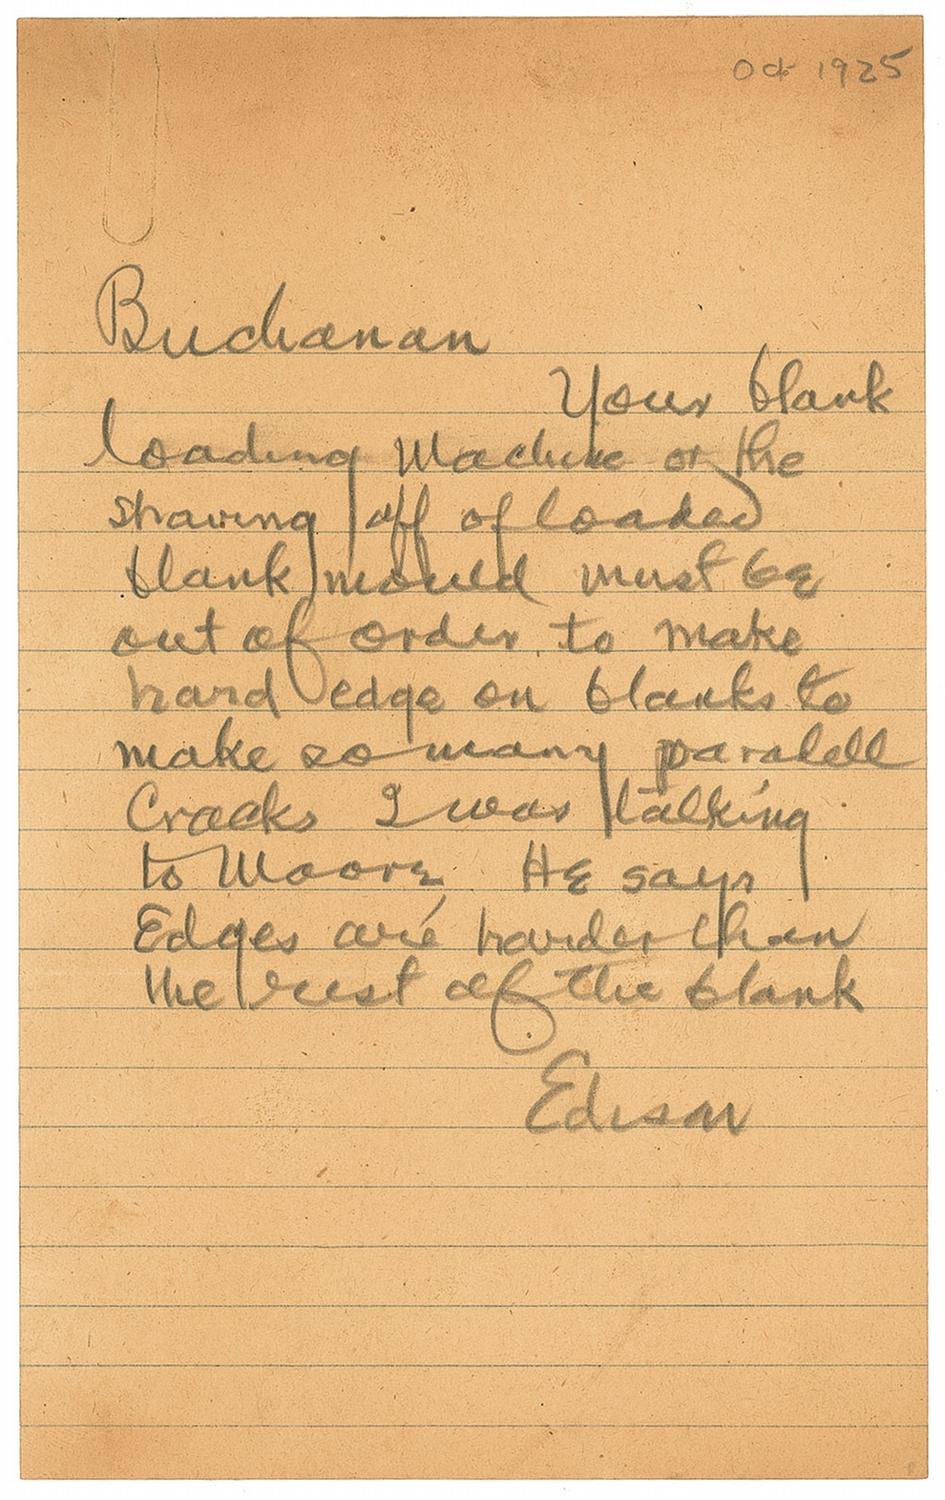 Oct 1925
Buchanan
Your blank
loading Machine or the
shaving off of loaded
blank mould must be
out of order to make
hard edge on blanks to
make so many paralell
Cracks I was talking
to Moore He says
Edges are harder than
the rest of the blank
Edison